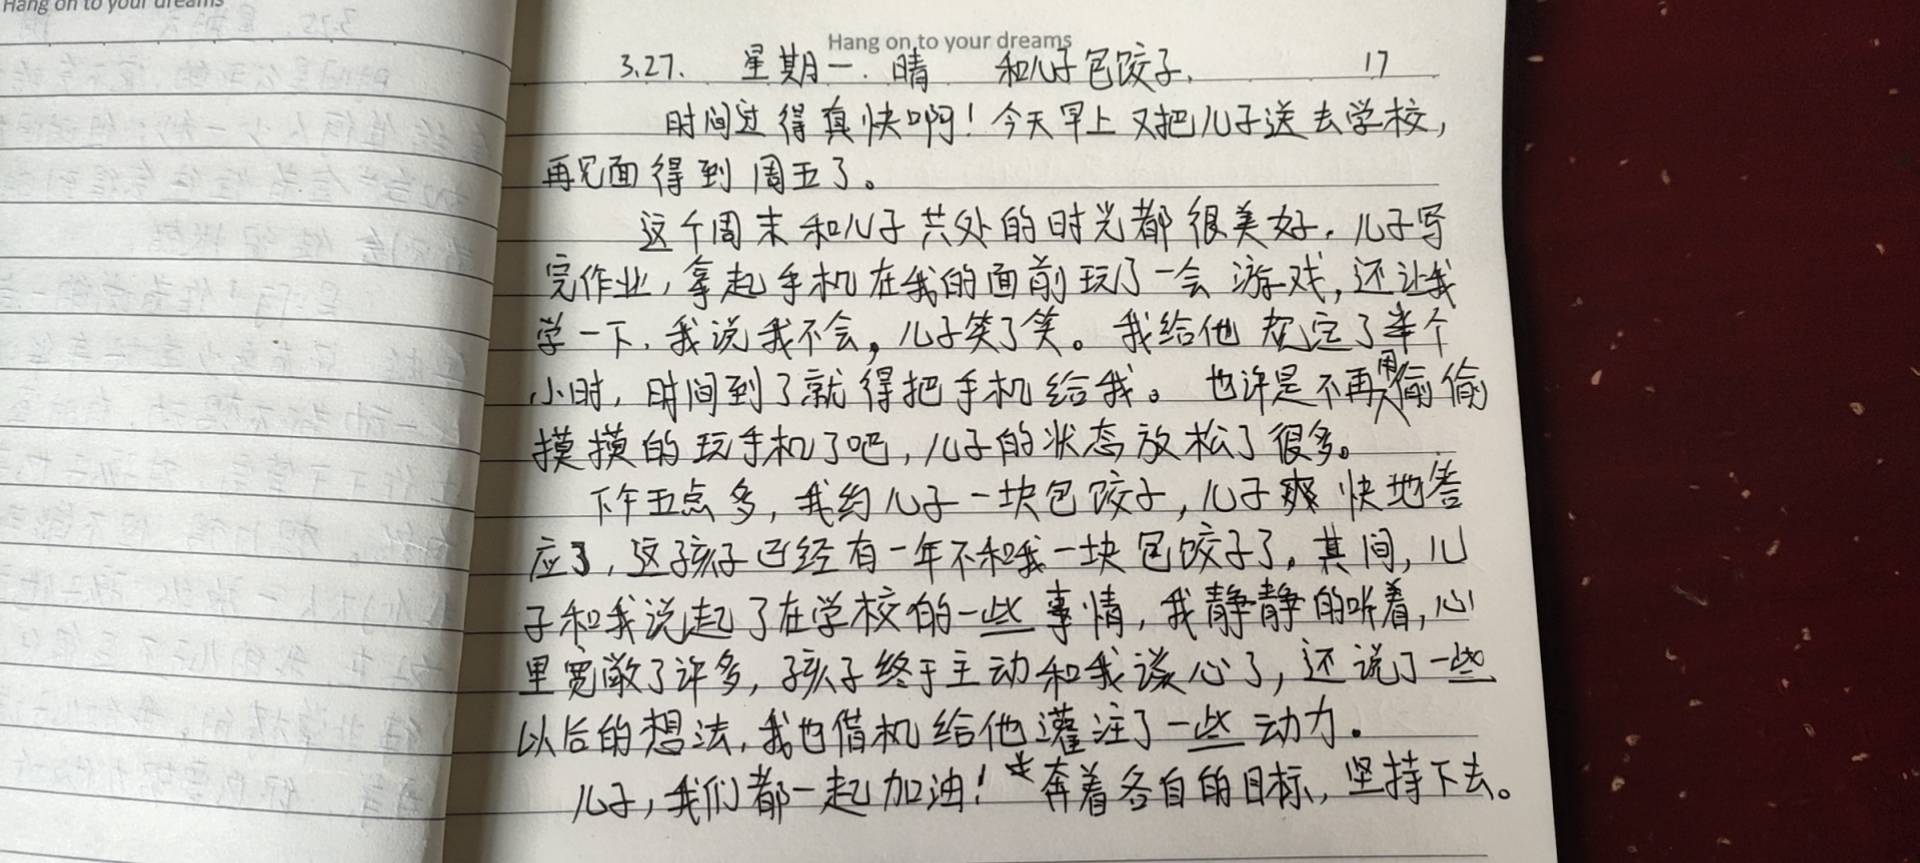 Hang on to your dreams
Hang on to your dreams
3.27. 星期一. 晴 和儿子包饺子. 17
时间过得真快啊！今天早上又把儿子送去学校，
再见面得到周五了。
这个周末和儿子共处的时光都很美好. 儿子写
完作业，拿起手机在我的面前玩了一会游戏，还让我
学一下. 我说我不会，儿子笑了笑。我给他规定了半个
小时，时间到了就得把手机给我。也许是不再用偷偷
摸摸的玩手机了吧，儿子的状态放松了很多。
下午五点多，我约儿子一块包饺子，儿子爽快地答
应了，这孩子已经有一年不和我一块包饺子了。其间，儿
子和我说起了在学校的一些事情，我静静的听着，心
里宽敞了许多，孩子终于主动和我谈心了，还说了一些
以后的想法，我也借机给他灌注了一些动力。
儿子，我们都一起加油！奔着各自的目标，坚持下去。